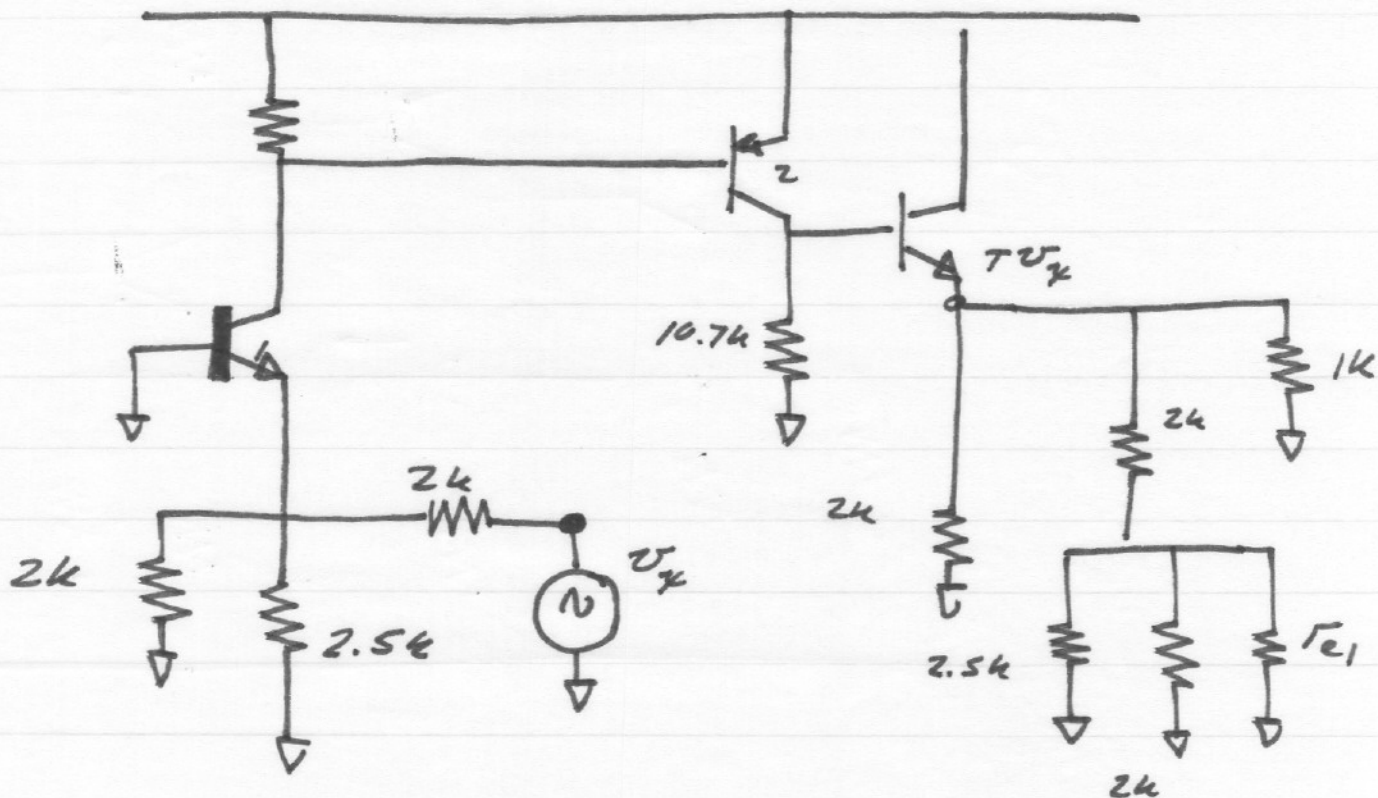 2
T v_x
10.7k
1K
1
2k
2k
2k
2k
v_x
2.5k
2.5k
r_e1
2k